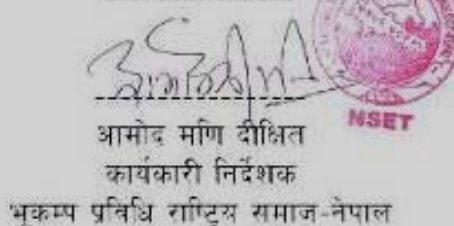 आमोद मणि दीक्षित
कार्यकारी निर्देशक
भूकम्प प्रविधि राष्ट्रिय समाज-नेपाल
NSET